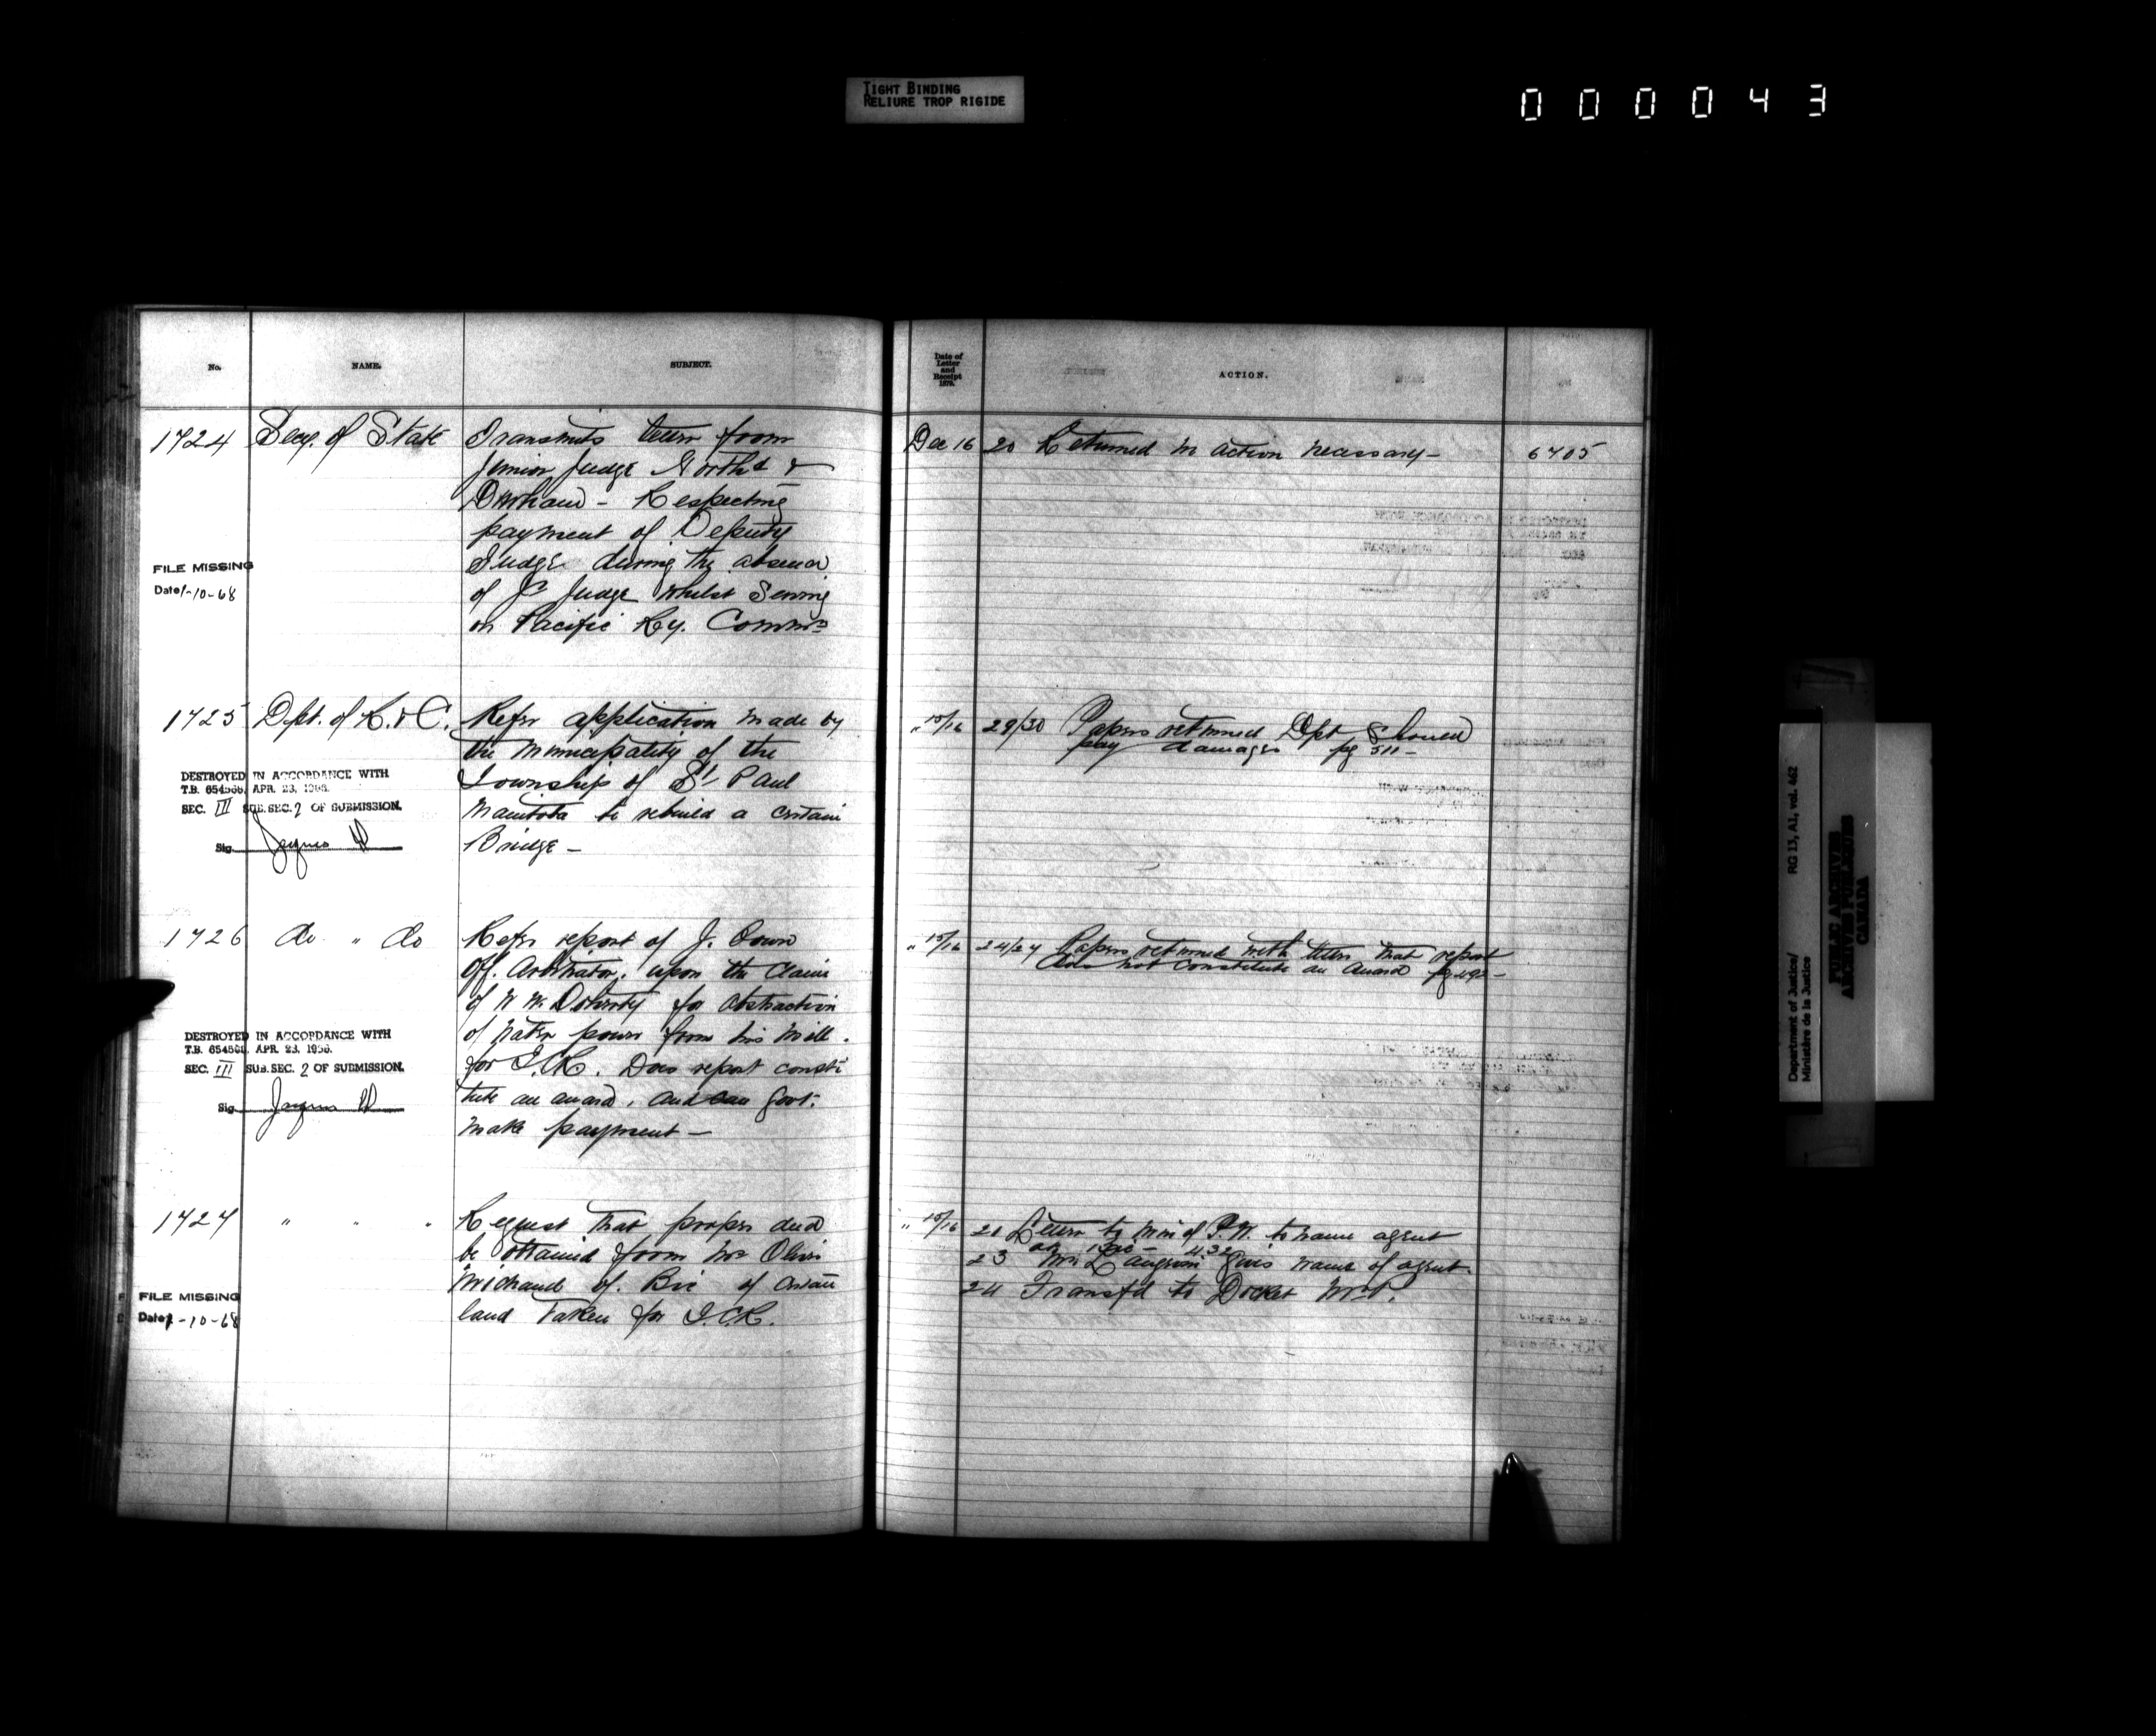 TIGHT BINDING
RELIURE TROP RIGIDE
000043
No.
NAME.
SUBJECT.
Date of
Letter
and
Receipt
1879.
ACTION.
1724 Secy. of State Transmits letter from
Junior Judge North'd &
Durham - Respecting
payment of Deputy
Judge during the absence
of Jr Judge whilst Serving
on Pacific Ry. Comm'n
FILE MISSING
Date 1-10-68
Dec 16 20 Returned no action necessary - 6705
1725 Dept. of R. & C. Refer application made by
the Municipality of the
Township of St Paul
Manitoba to rebuild a certain
Bridge -
DESTROYED IN ACCORDANCE WITH
T.B. 654568, APR. 23, 1956.
SEC. III SUB. SEC. 2 OF SUBMISSION.
Sig. Jaques
" 15/16 29/30 Papers returned Dept should
pay damages pg 511 -
1726 do " do Refer report of J. Cowan
Off. Arbitrator, upon the claim
of W W. Doherty for obstruction
of water power from his mill.
for I.C.R. Does report consti
tute an award, and can Govt.
make payment -
DESTROYED IN ACCORDANCE WITH
T.B. 654568, APR. 23, 1956.
SEC. III SUB. SEC. 2 OF SUBMISSION.
Sig. Jaques
" 15/16 24/27 Papers returned with letter that report
does not constitute an award
1727 " " " Request that proper deed
be obtained from Mr Oliver
Michaud of Bic of certain
land taken for I.C.R.
FILE MISSING
Date 1-10-68
" 15/16 21 Letter to Min of P.W. to name agent
432
23 Mr Langevin gives name of agent.
24 Transf'd to Docket
Department of Justice/
Ministère de la Justice
RG 13, A1, vol. 462
PUBLIC ARCHIVES
ARCHIVES PUBLIQUES
CANADA